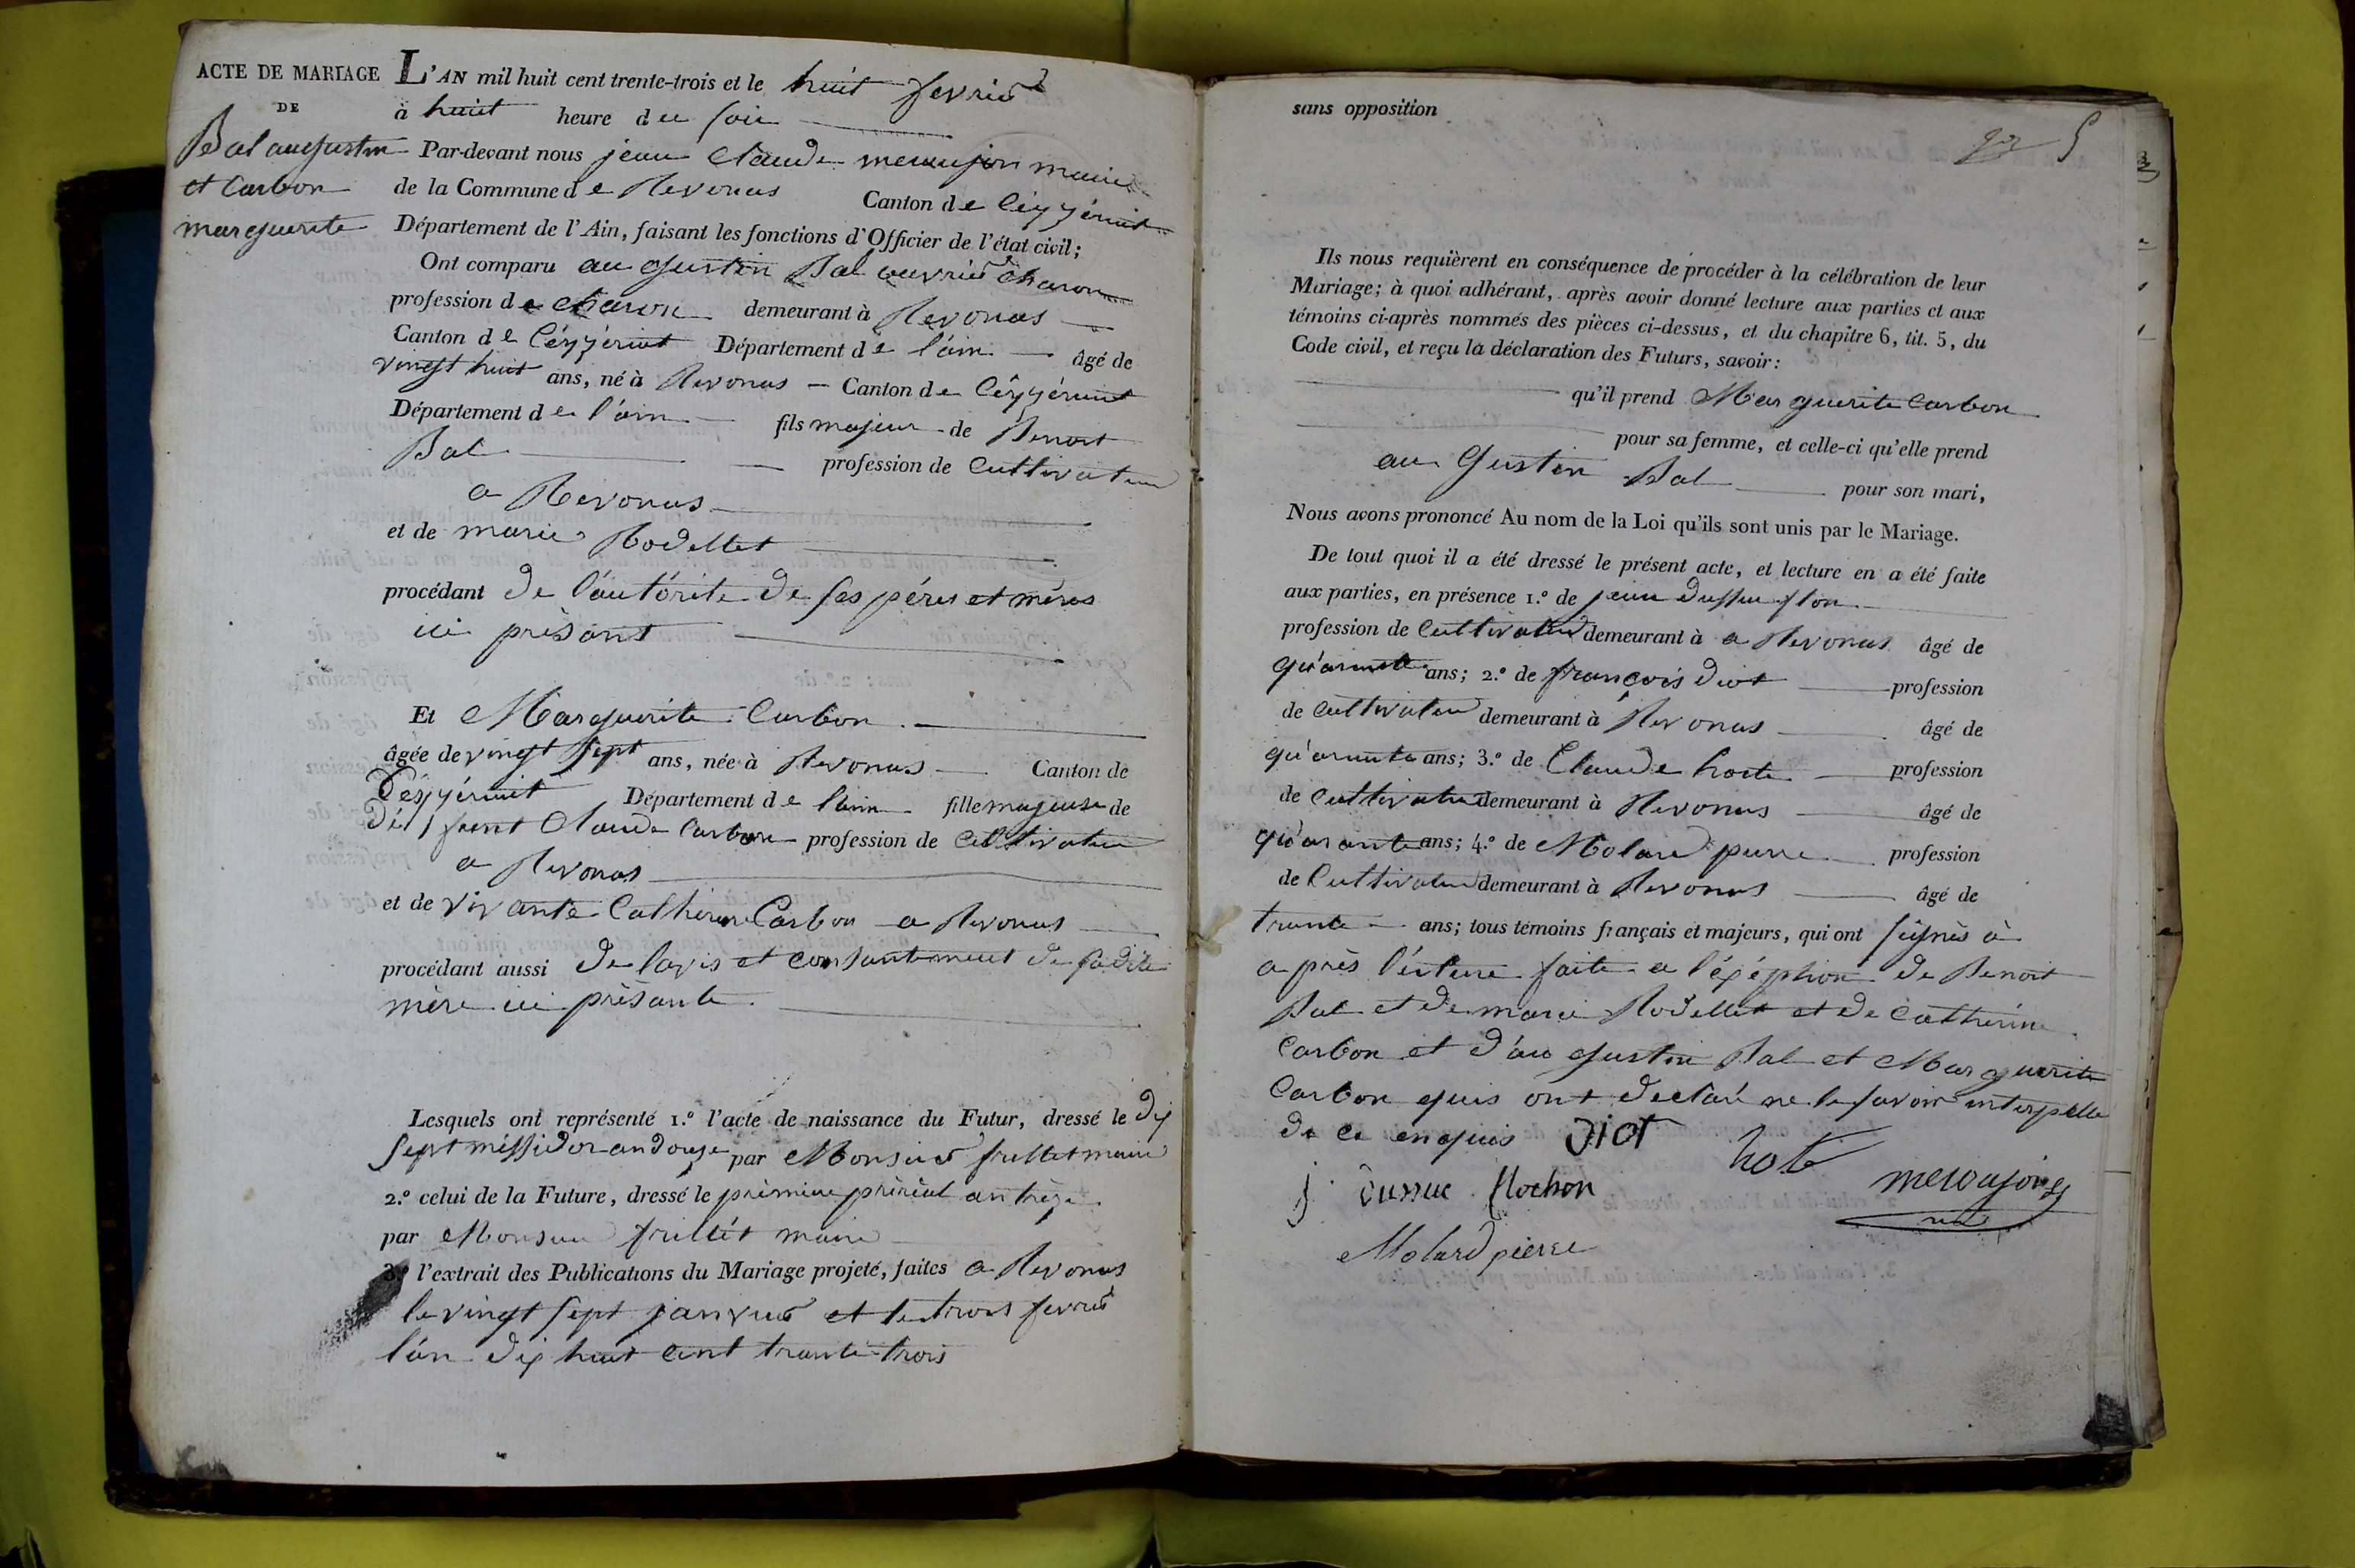 ACTE DE MARIAGE
DE
Bal augustin
et Carbon
marguerite
L'AN mil huit cent trente-trois et le huit fevrier
à huit heure du soir
Par-devant nous jean Claude mercujon maire
de la Commune de Revonas Canton de Céyzériat
Département de l'Ain, faisant les fonctions d'Officier de l'état civil;
Ont comparu au gustin Bal ouvrier charon
profession de charon demeurant à Revonas
Canton de Céyzériat Département de l'ain âgé de
vingt huit ans, né à Revonas Canton de Céyzériat
Département de l'ain fils majeur de Benoit
Bal profession de Cultivateur
a Revonas
et de marie Rodellet
procédant de l'autórité de ses péres et méres
ici présant
Et Marguerite Carbon
âgée de vingt sept ans, née à Revonas Canton de
Céyzériat Département de l'ain fille majeure de
défunt Claude Carbon profession de Cultivateur
a Revonas
et de vivante Catherine Carbon a Revonas
procédant aussi de lavis et consantement de sadite
mère ici présante
Lesquels ont représenté 1.º l'acte de naissance du Futur, dressé le dix
sept méssidor an douze par Monsieur frillet maire
2.º celui de la Future, dressé le prémier préréal an treze
par Monsieur frillét maire
3.º l'extrait des Publications du Mariage projeté, faites a Revonas
le vingt sept janvier et le trois fevrier
l'an dix huit cent trante trois
sans opposition
5
Ils nous requièrent en conséquence de procéder à la célébration de leur
Mariage; à quoi adhérant, après avoir donné lecture aux parties et aux
témoins ci-après nommés des pièces ci-dessus, et du chapitre 6, tit. 5, du
Code civil, et reçu la déclaration des Futurs, savoir:
qu'il prend Marguerite Carbon
pour sa femme, et celle-ci qu'elle prend
au Gustin Bal pour son mari,
Nous avons prononcé Au nom de la Loi qu'ils sont unis par le Mariage.
De tout quoi il a été dressé le présent acte, et lecture en a été faite
aux parties, en présence 1.º de jean
profession de Cultivateur demeurant à a Revonas âgé de
qu'arante ans; 2.º de françois diot profession
de Cultivateur demeurant à Revonas âgé de
qu'arante ans; 3.º de Claude hote profession
de Cultivateur demeurant à Revonas âgé de
qu'arante ans; 4.º de Molard pierre profession
de Cultivateur demeurant à Revonas âgé de
trante ans; tous témoins français et majeurs, qui ont signés à
a près l'écture faite a l'éxéption de Benoit
Bal et de marie Rodellet et de Catherine
Carbon et d'au gustin Bal et Marguerite
Carbon quis ont déclaré ne le savoir interpellé
de ce enquis diot hote mercujon
j. dussuc flochon
Molard pierre